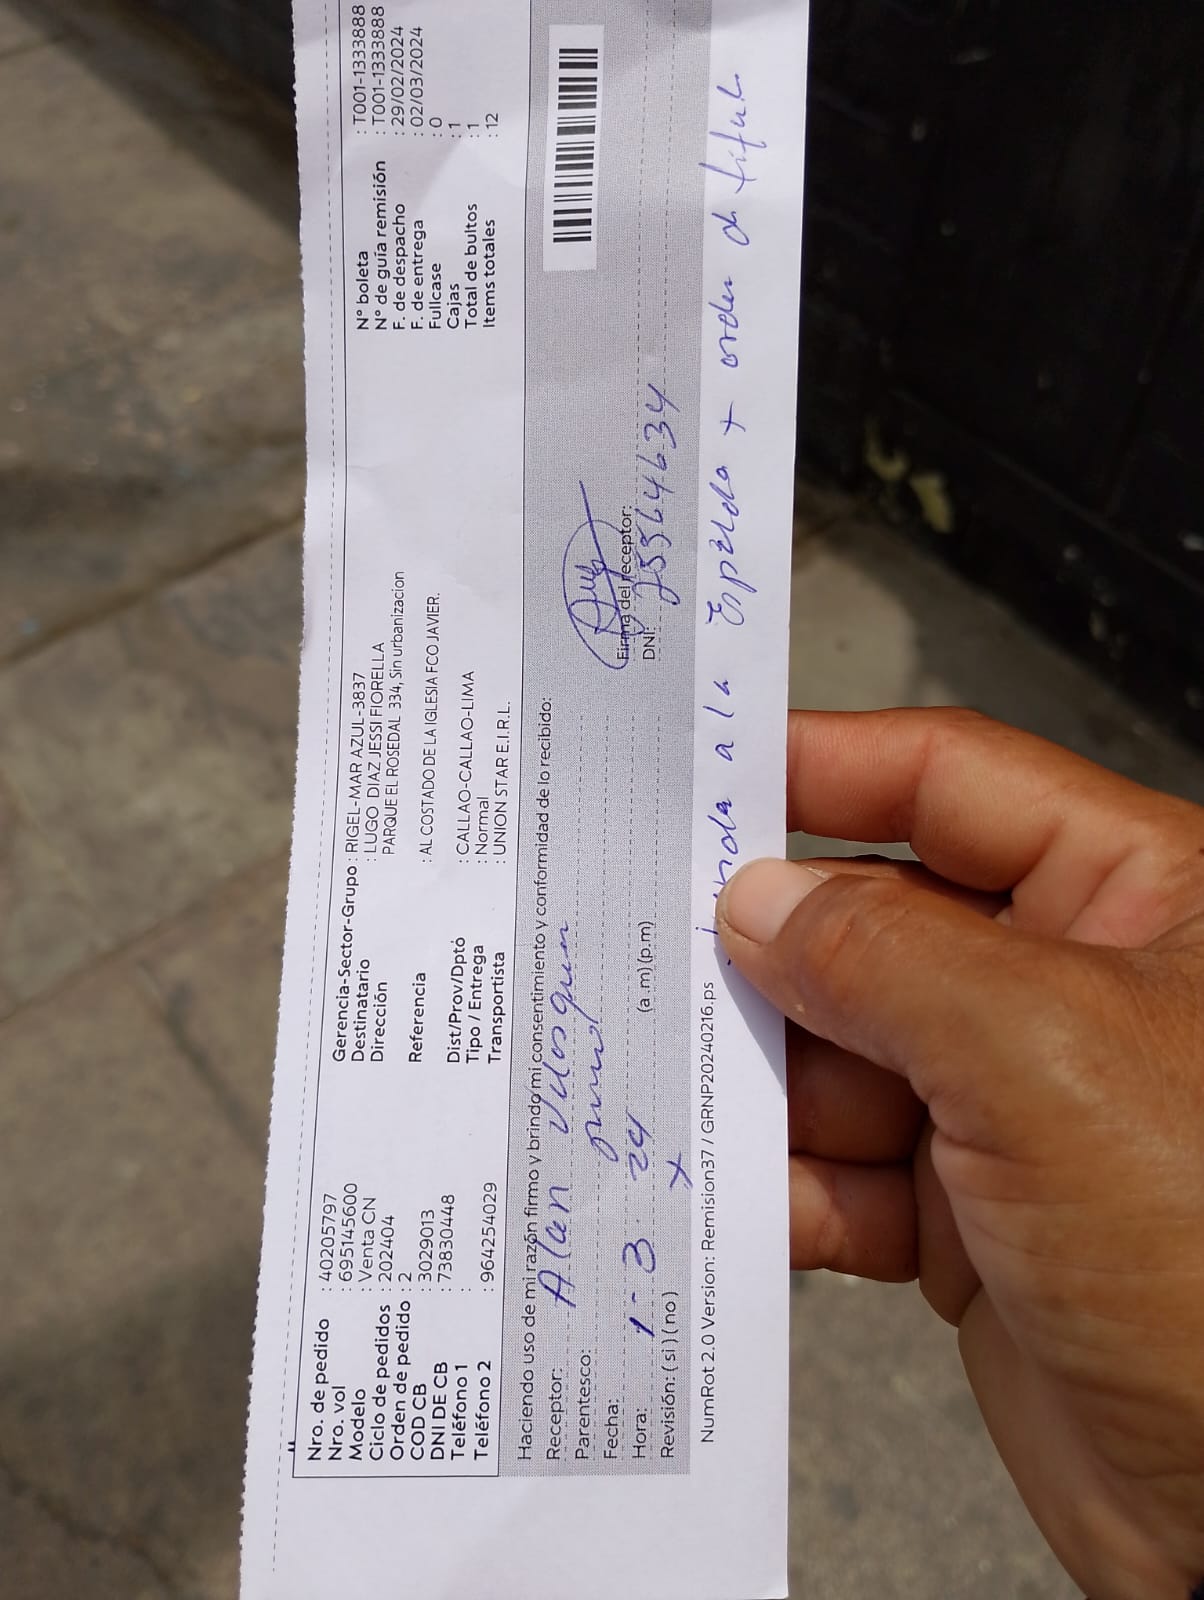 Nro. de pedido : 40205797
Nro. vol : 695145600
Modelo : Venta CN
Ciclo de pedidos : 202404
Orden de pedido : 2
COD CB : 3029013
DNI DE CB : 73830448
Teléfono 1 :
Teléfono 2 : 964254029
Gerencia-Sector-Grupo : RIGEL-MAR AZUL-3837
Destinatario : LUGO DIAZ JESSI FIORELLA
Dirección PARQUE EL ROSEDAL 334, Sin urbanizacion
Referencia : AL COSTADO DE LA IGLESIA FCO JAVIER.
Dist/Prov/Dptó : CALLAO-CALLAO-LIMA
Tipo / Entrega : Normal
Transportista : UNION STAR E.I.R.L.
N° boleta : T001-1333888
N° de guía remisión : T001-1333888
F. de despacho : 29/02/2024
F. de entrega : 02/03/2024
Fullcase : 0
Cajas : 1
Total de bultos : 1
Items totales : 12
Haciendo uso de mi razón firmo y brindo mi consentimiento y conformidad de lo recibido:
Receptor: Alan
Parentesco:
Fecha: 1-3-24
Hora: (a.m)(p.m)
Revisión: (si)(no) x
Firma del receptor:
DNI: 25564634
NumRot 2.0 Version: Remision37 / GRNP20240216.ps
a la Espalda x orden d